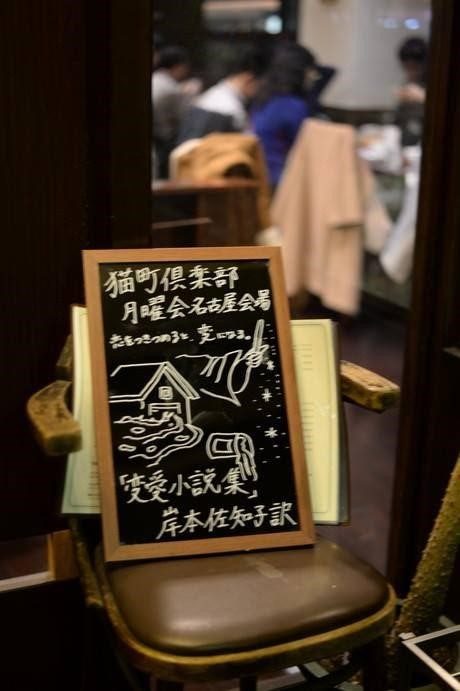 猫町倶楽部
月曜会名古屋会場
恋をつきつめると、変になる。
「変愛小説集」
岸本佐知子訳